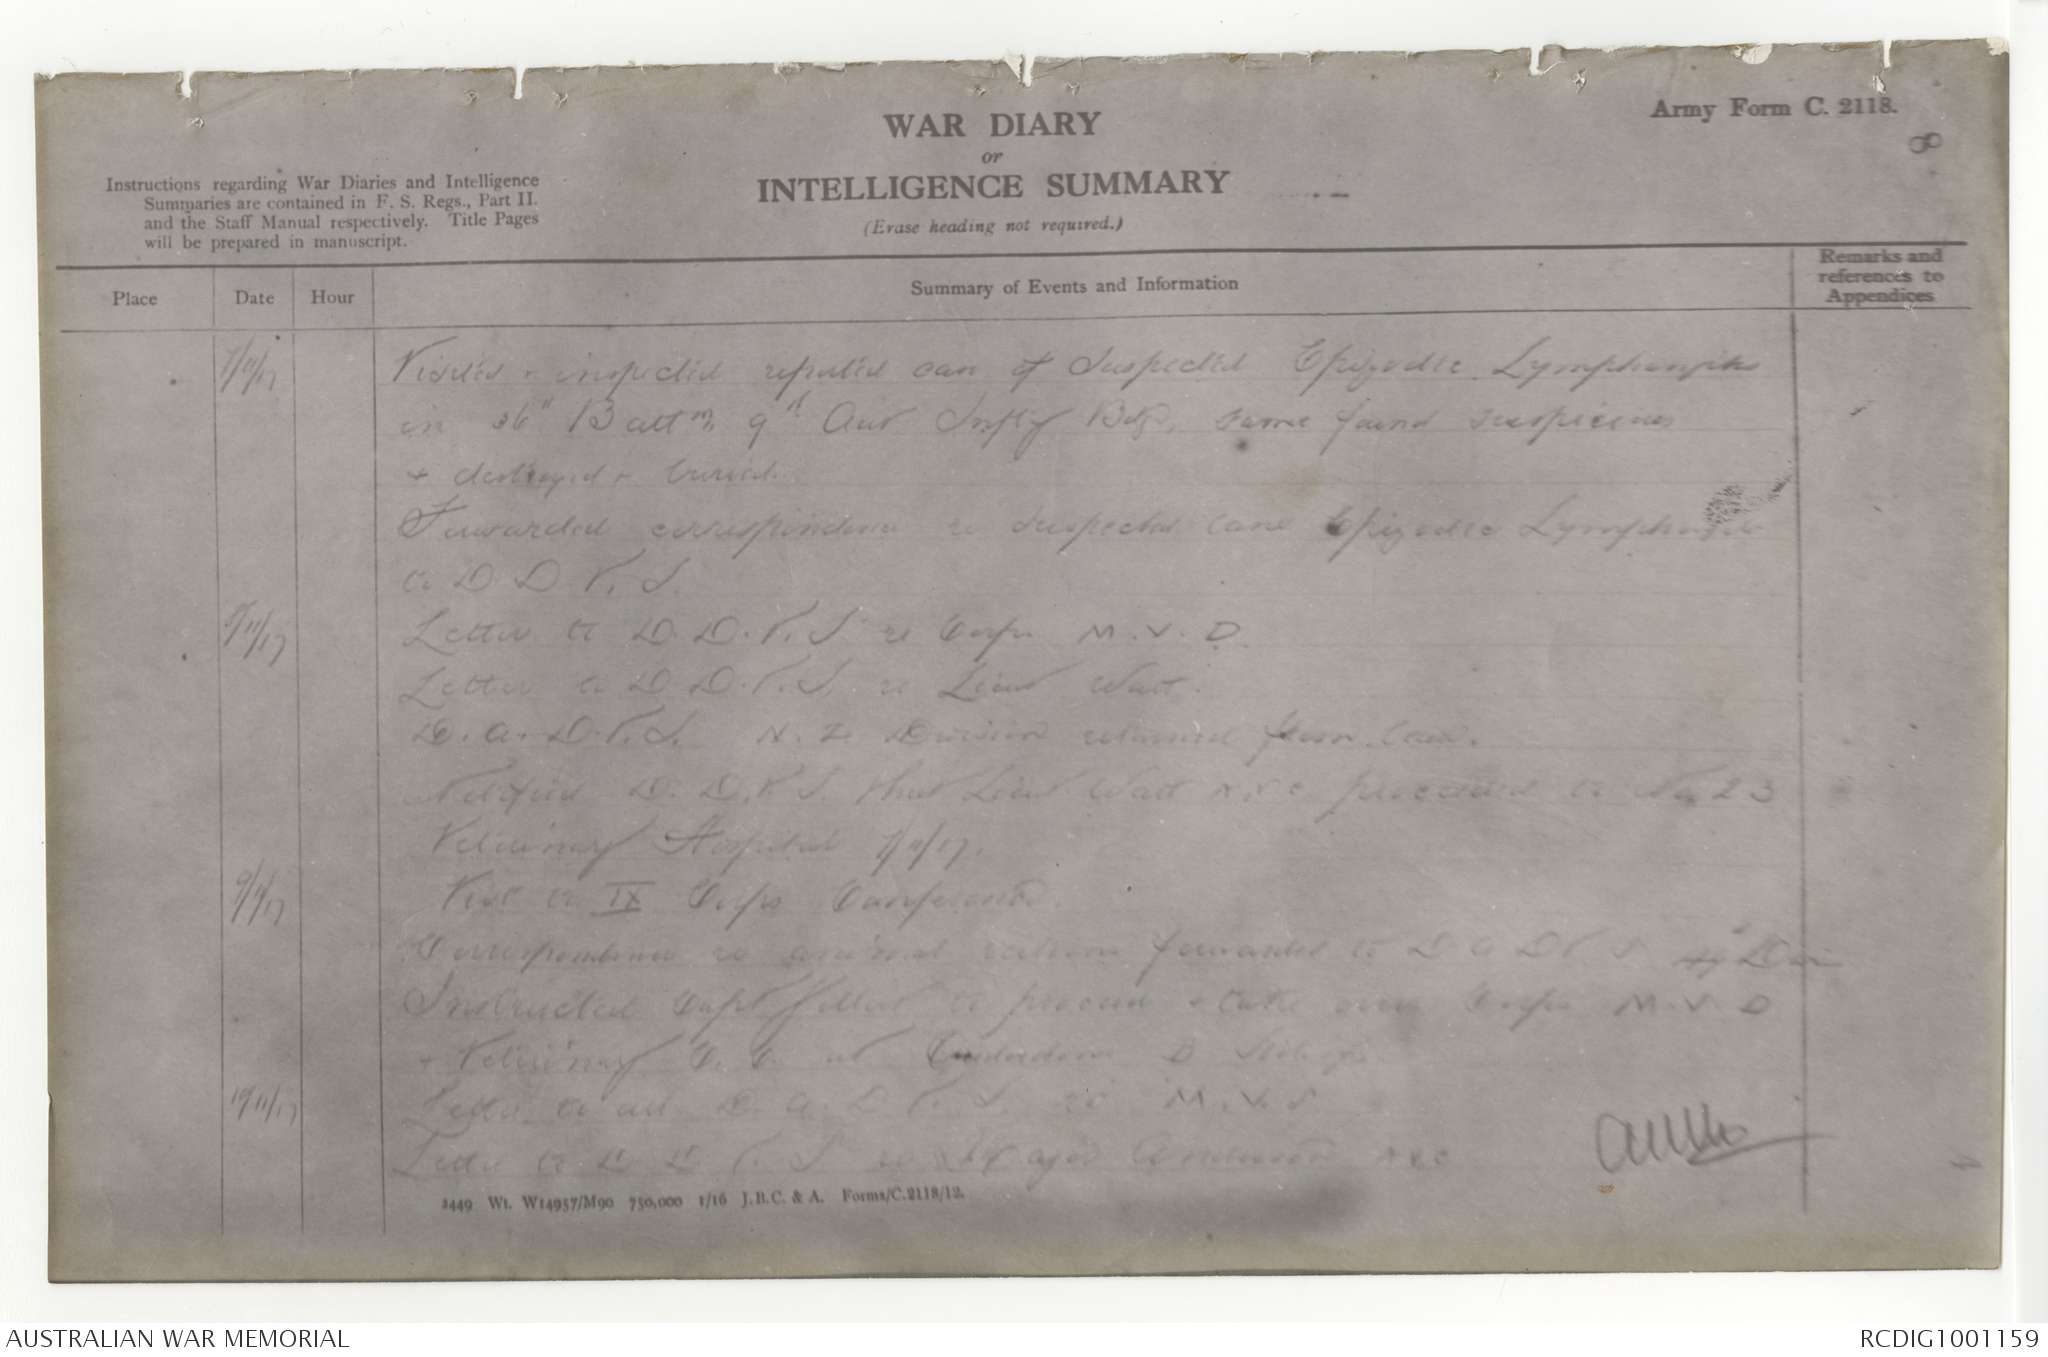 Army Form C. 2118.
8
WAR DIARY
or
INTELLIGENCE SUMMARY
(Erase heading not required.)
Instructions regarding War Diaries and Intelligence
Summaries are contained in F. S. Regs., Part II.
and the Staff Manual respectively. Title Pages
will be prepared in manuscript.
Place
Date
Hour
Summary of Events and Information
Remarks and
references to
Appendices
7/11/17
Visited + inspected reported case of suspected Epizootic Lymphangitis
in 36th Battn, 9th Aus Inftry Bde, same found suspicious
+ destroyed + buried.
Forwarded correspondence re suspected case Epizootic Lymphangitis
to D D. V. S.
8/11/17
Letter to D. D. V. S. re Corps M. V. D.
Letter to D D. V. S. re Lieut Watt.
D. A. D. V. S. N. Z. Division returned from leave.
Notified D. D. V. S. that Lieut Watt proceeded to No 23
Veterinary Hospital 7/11/17.
9/11/17
Visit to IX Corps Conference.
Correspondence re animal rations forwarded to D A D V. S. Div
Instructed Capt to proceed + take over Corps M. V. D
+ Veterinary at
10/11/17
Letter to all D. A. D. V. S. re M. V. S
Letter to D D V. S re Major Anderson
2449 Wt. W14957/M90 750,000 1/16 J.B.C. & A. Forms/C.2118/12.
AUSTRALIAN WAR MEMORIAL
RCDIG1001159